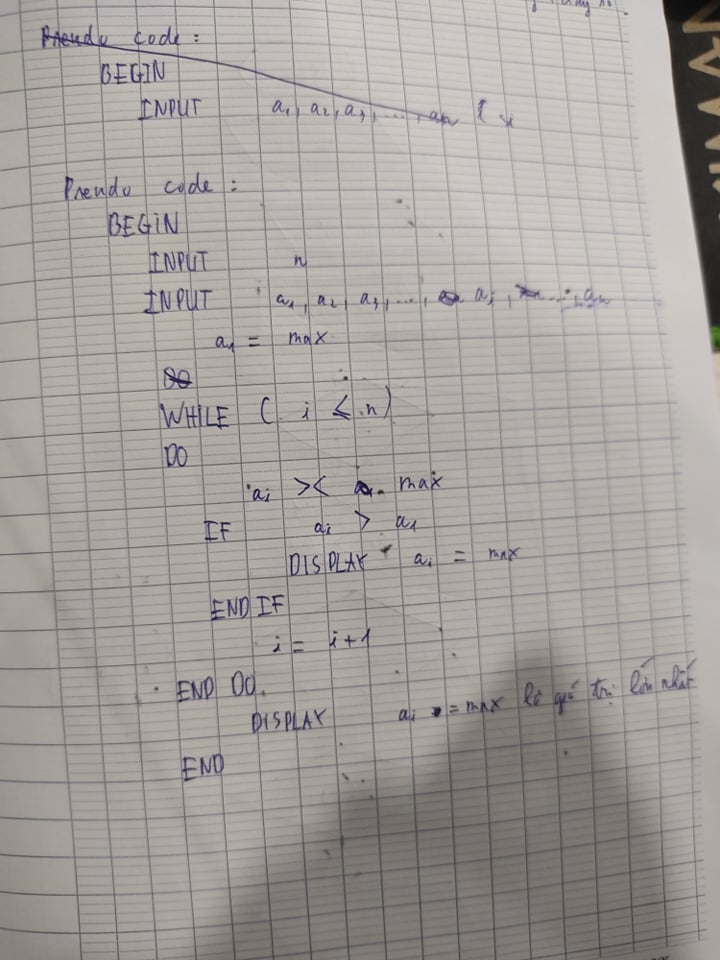 Pseudo code :
BEGIN
INPUT a1, a2, a3, ..., an
Pseudo code :
BEGIN
INPUT n
INPUT a1, a2, a3, ..., ai, ..., an
a1 = max
DO
WHILE ( i ≤ n)
DO
ai >< max
IF ai > a1
DISPLAY ai = max
END IF
i = i+1
END DO.
DISPLAY ai = max là giá trị lớn nhất
END